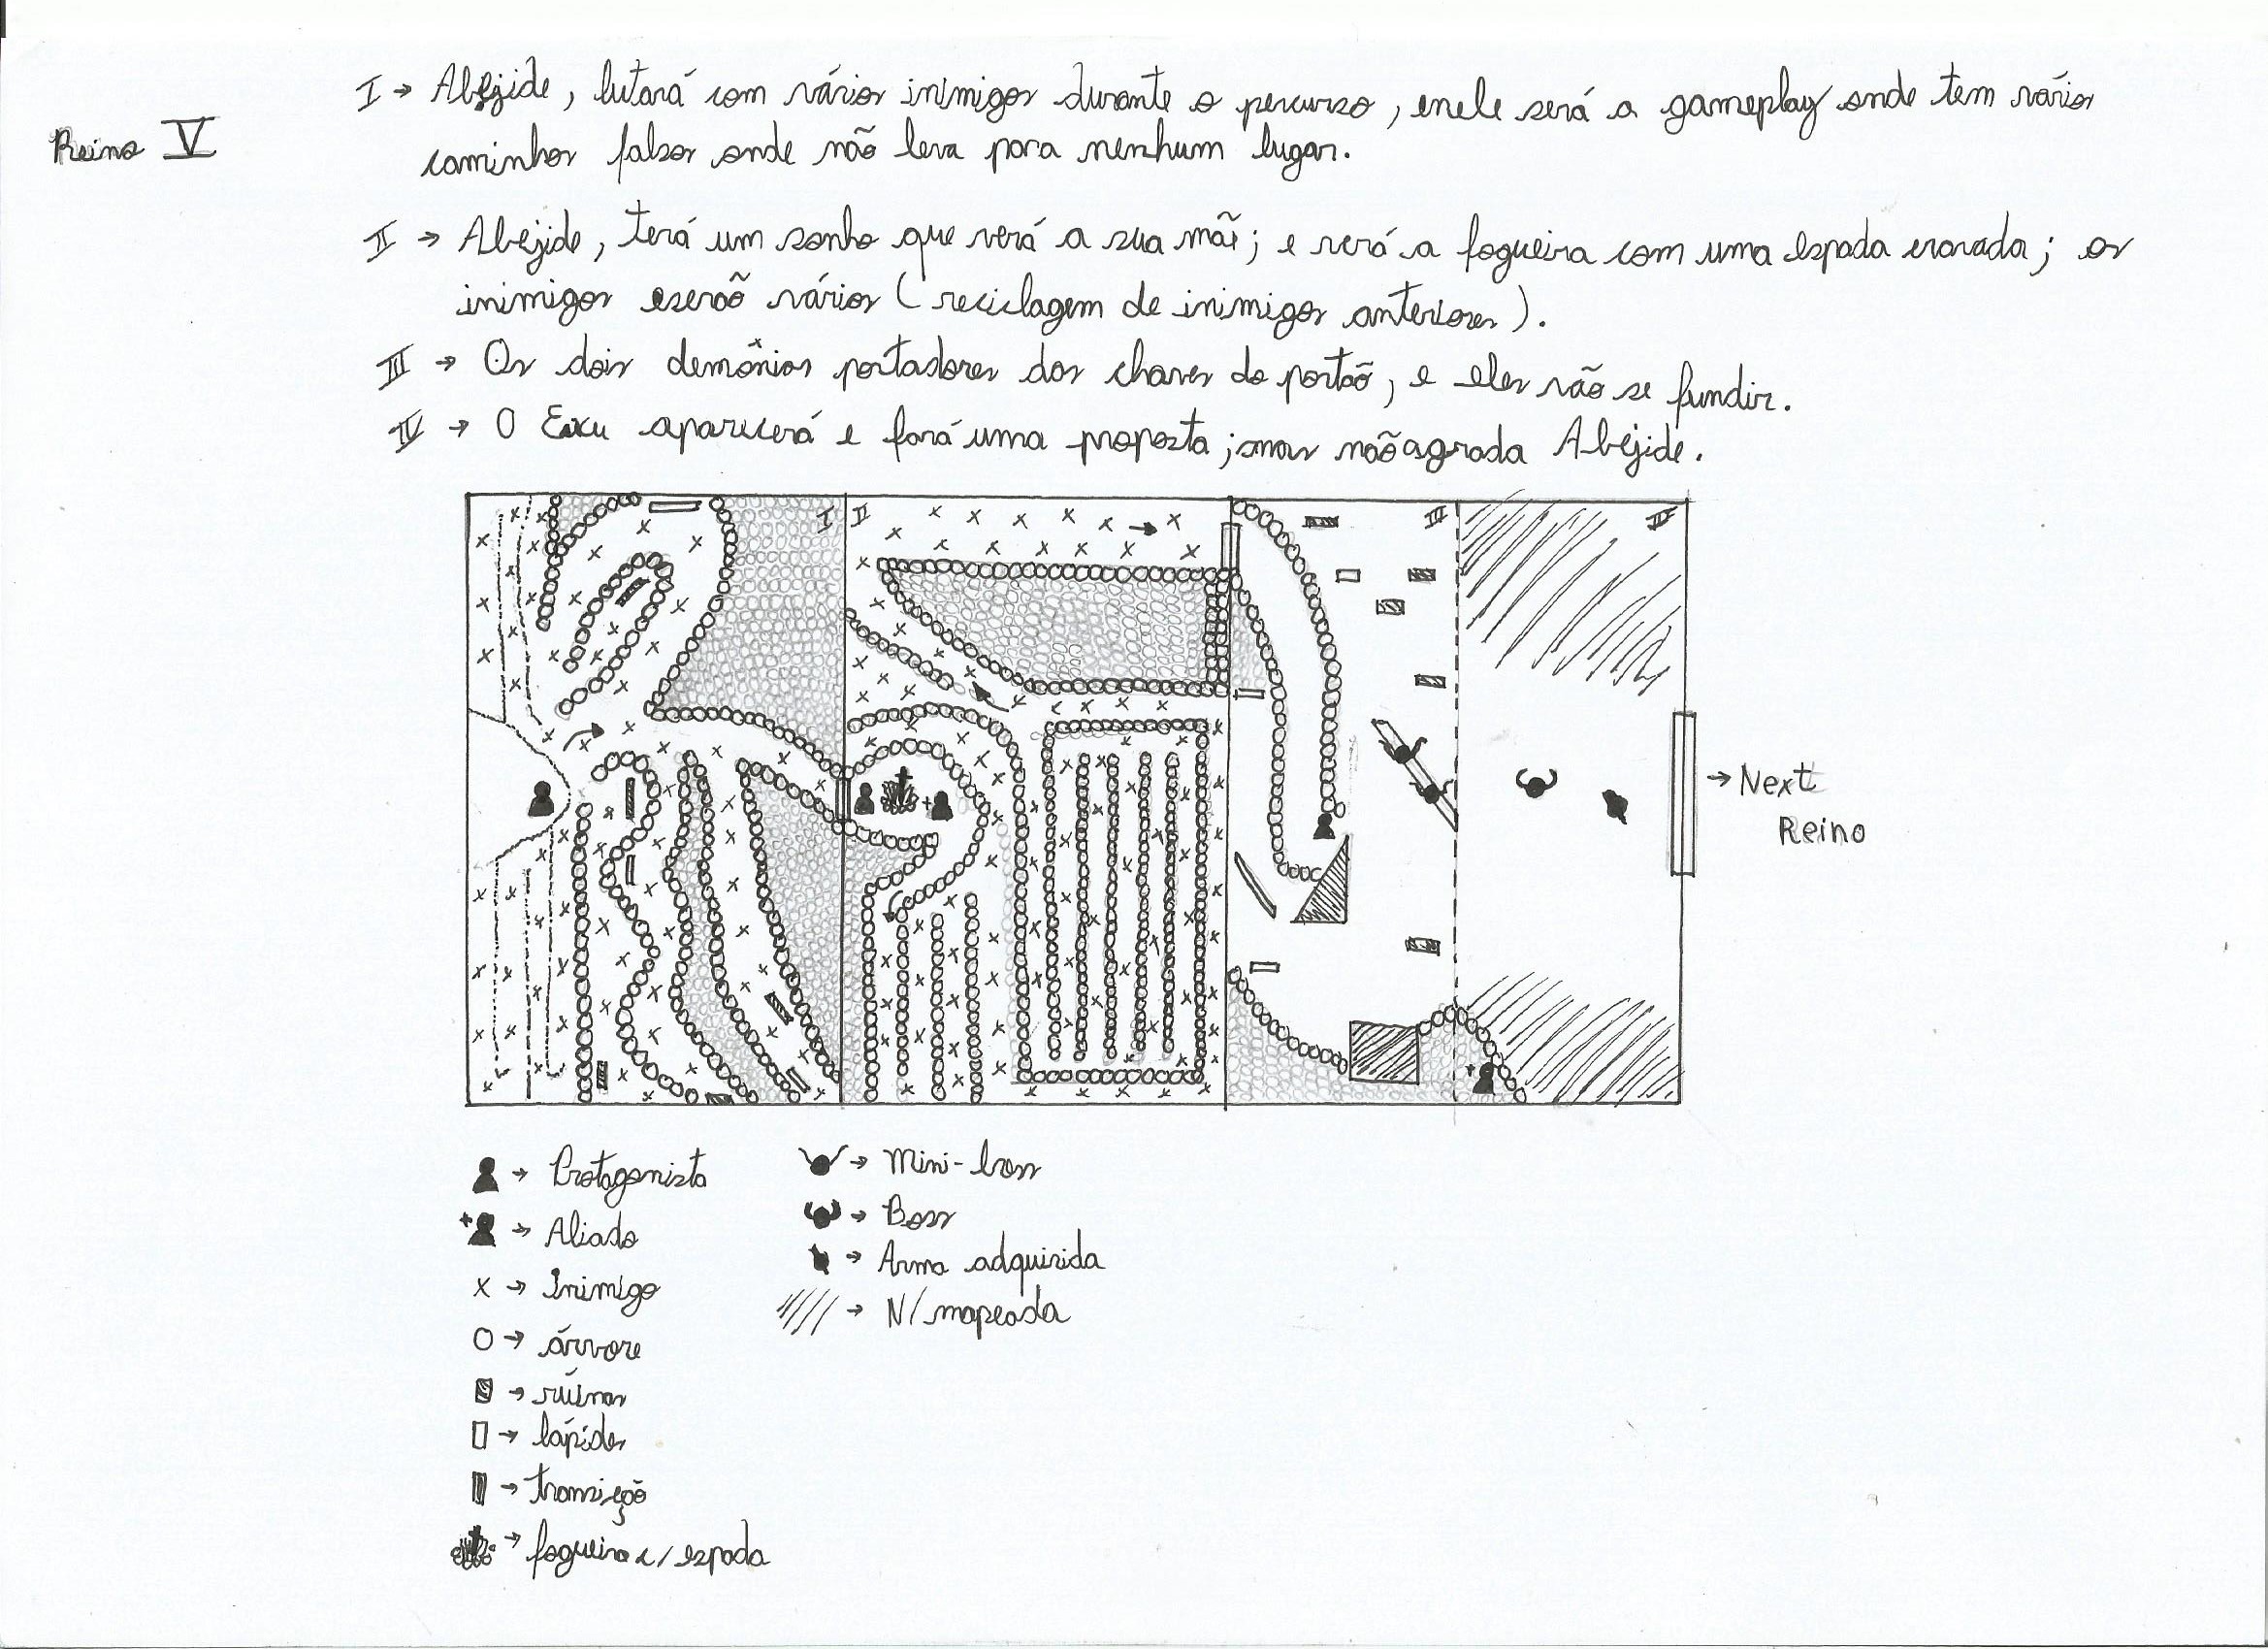 Reino V
I → Abejide, lutará com vários inimigos durante o percurso, enele será a gameplay onde tem vários
caminhos falsos onde não leva para nenhum lugar.
II → Abejide, terá um sonho que verá a sua mãe; e verá a fogueira com uma espada cravada; os
inimigos eserão vários (reciclagem de inimigos anteriores).
III → Os dois demônios portadores das chaves do portão, e eles vão se fundir.
IV → O Exu aparecerá e fará uma proposta; mas não agrada Abejide.
I II III IV
→ Next
Reino
→ Protagonista
→ Aliado
x → Inimigo
O → árvore
→ ruínas
→ lápides
→ transição
→ fogueira c/ espada
→ Mini-boss
→ Boss
→ Arma adquirida
→ N/ mapeada